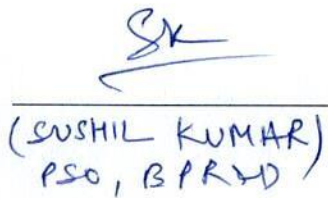 SK
(SUSHIL KUMAR)
PSO, BPR&D